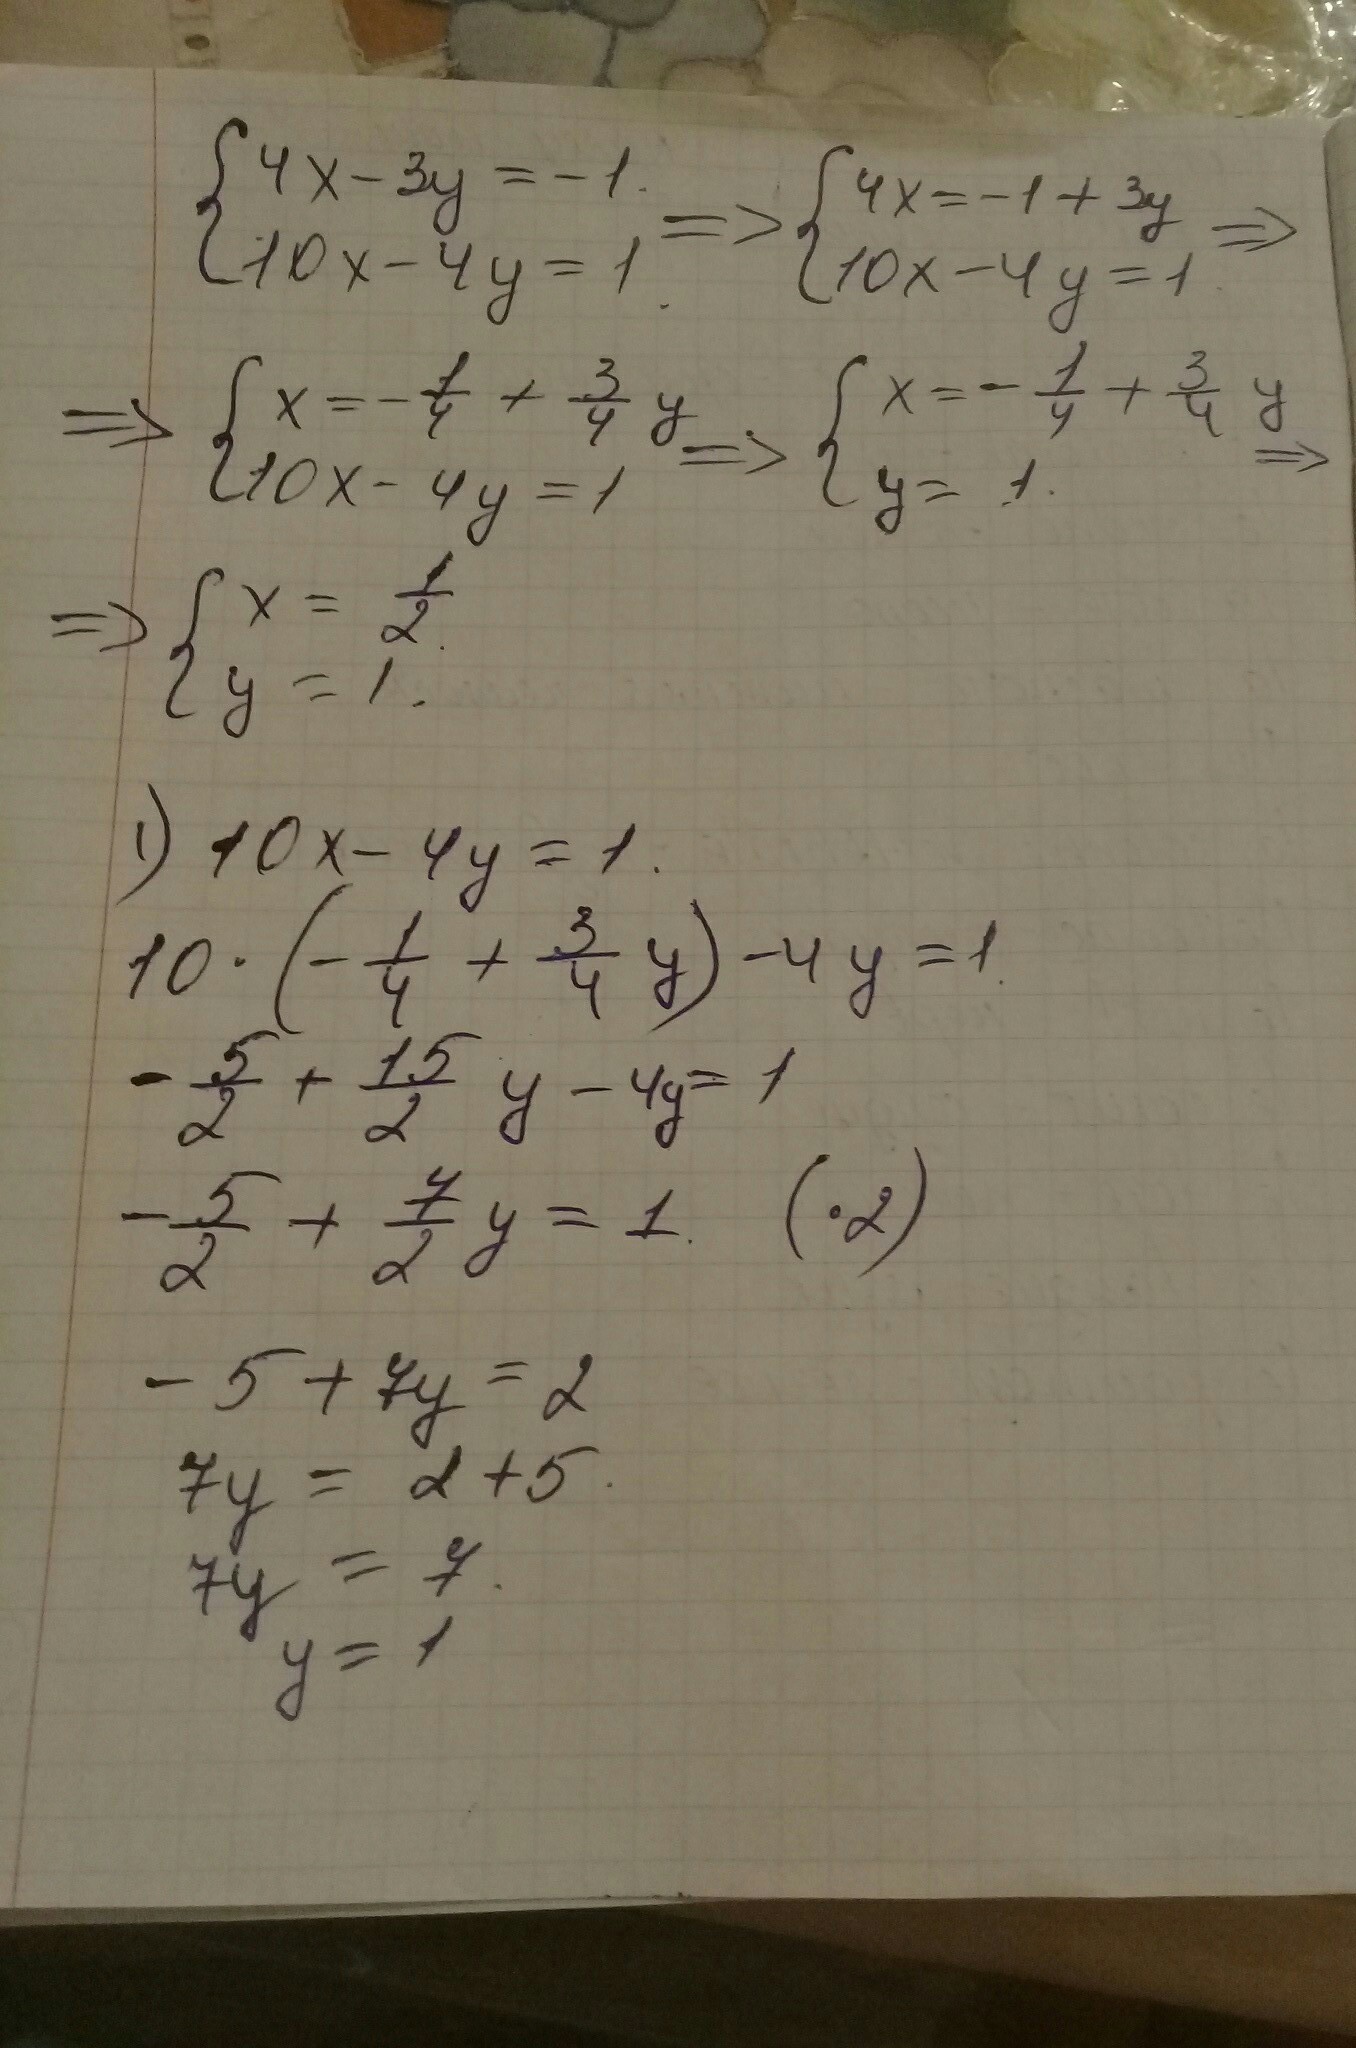 {4x-3y=-1. => {4x=-1+3y =>
{10x-4y=1. {10x-4y=1.
=> {x=-1/4+3/4y => {x=-1/4+3/4y =>
{10x-4y=1 {y=1.
=> {x=1/2.
{y=1.
1) 10x-4y=1.
10·(-1/4+3/4y)-4y=1.
-5/2+15/2y-4y=1
-5/2+7/2y=1. (·2)
-5+7y=2
7y=2+5.
7y=7.
y=1